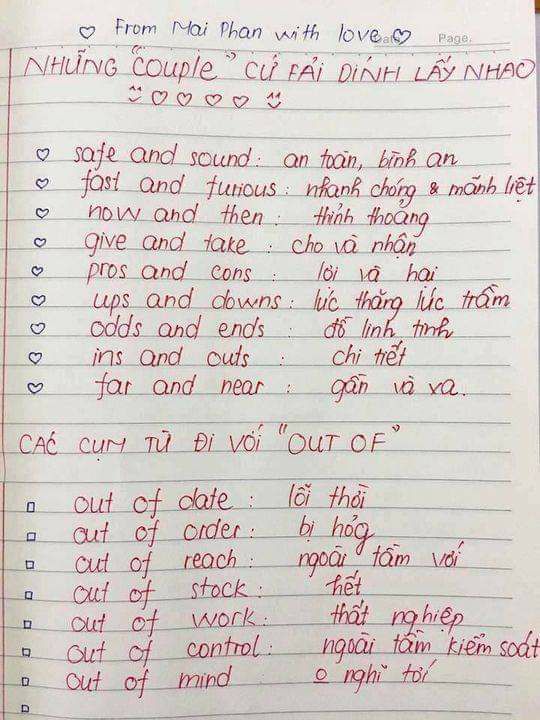 From Mai Phan with love
Date Page.
NHỮNG "COUPLE" CỨ FẢI DÍNH LẤY NHAO
safe and sound: an toàn, bình an
fast and furious: nhanh chóng & mãnh liệt
now and then: thỉnh thoảng
give and take: cho và nhận
pros and cons: lời và hai
ups and downs: lúc thăng lúc trầm
odds and ends: đồ linh tinh
ins and outs: chi tiết
far and near: gần và xa.
CÁC CỤM TỪ ĐI VỚI "OUT OF"
out of date: lỗi thời
out of order: bị hỏg
out of reach: ngoài tầm với
out of stock: hết
out of work: thất nghiệp
out of control: ngoài tầm kiểm soát
out of mind o nghĩ tới